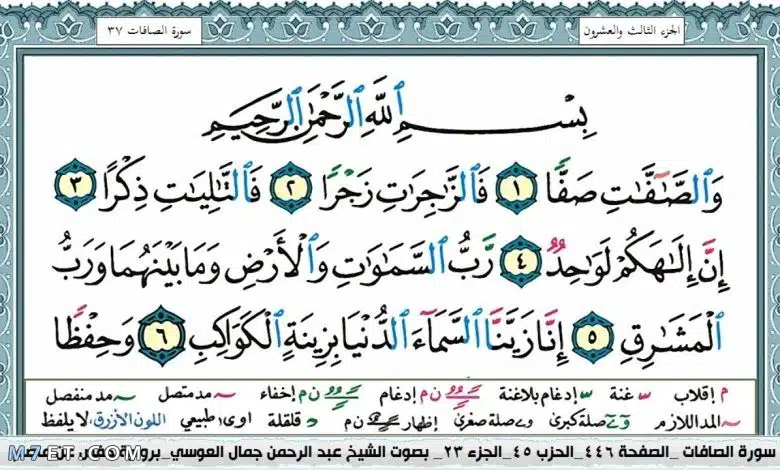 الجزء الثالث والعشرون
سورة الصافات ٣٧
بِسْمِ ٱللَّهِ ٱلرَّحْمَٰنِ ٱلرَّحِيمِ
وَٱلصَّٰٓفَّٰتِ صَفًّا ١ فَٱلزَّٰجِرَٰتِ زَجْرًا ٢ فَٱلتَّٰلِيَٰتِ ذِكْرًا ٣
إِنَّ إِلَٰهَكُمْ لَوَٰحِدٌ ٤ رَّبُّ ٱلسَّمَٰوَٰتِ وَٱلْأَرْضِ وَمَا بَيْنَهُمَا وَرَبُّ
ٱلْمَشَٰرِقِ ٥ إِنَّا زَيَّنَّا ٱلسَّمَآءَ ٱلدُّنْيَا بِزِينَةٍ ٱلْكَوَاكِبِ ٦ وَحِفْظًا
م إقلاب غنة إدغام بلاغنة ن م إدغام ن م إخفاء مد متصل مد منفصل
المد اللازم صلة كبرى صلة صغرى إظهار ن م قلقلة ا و ى طبيعي اللون الأزرق لا يلفظ
سورة الصافات _الصفحة ٤٤٦_الحزب ٤٥_الجزء ٢٣_ بصوت الشيخ عبد الرحمن جمال العوسي_
M7ET.COM